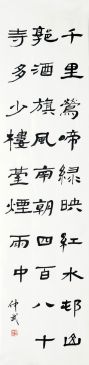 千里鶯啼綠映紅水邨山
郭酒旗風南朝四百八十
寺多少樓臺煙雨中
仲武